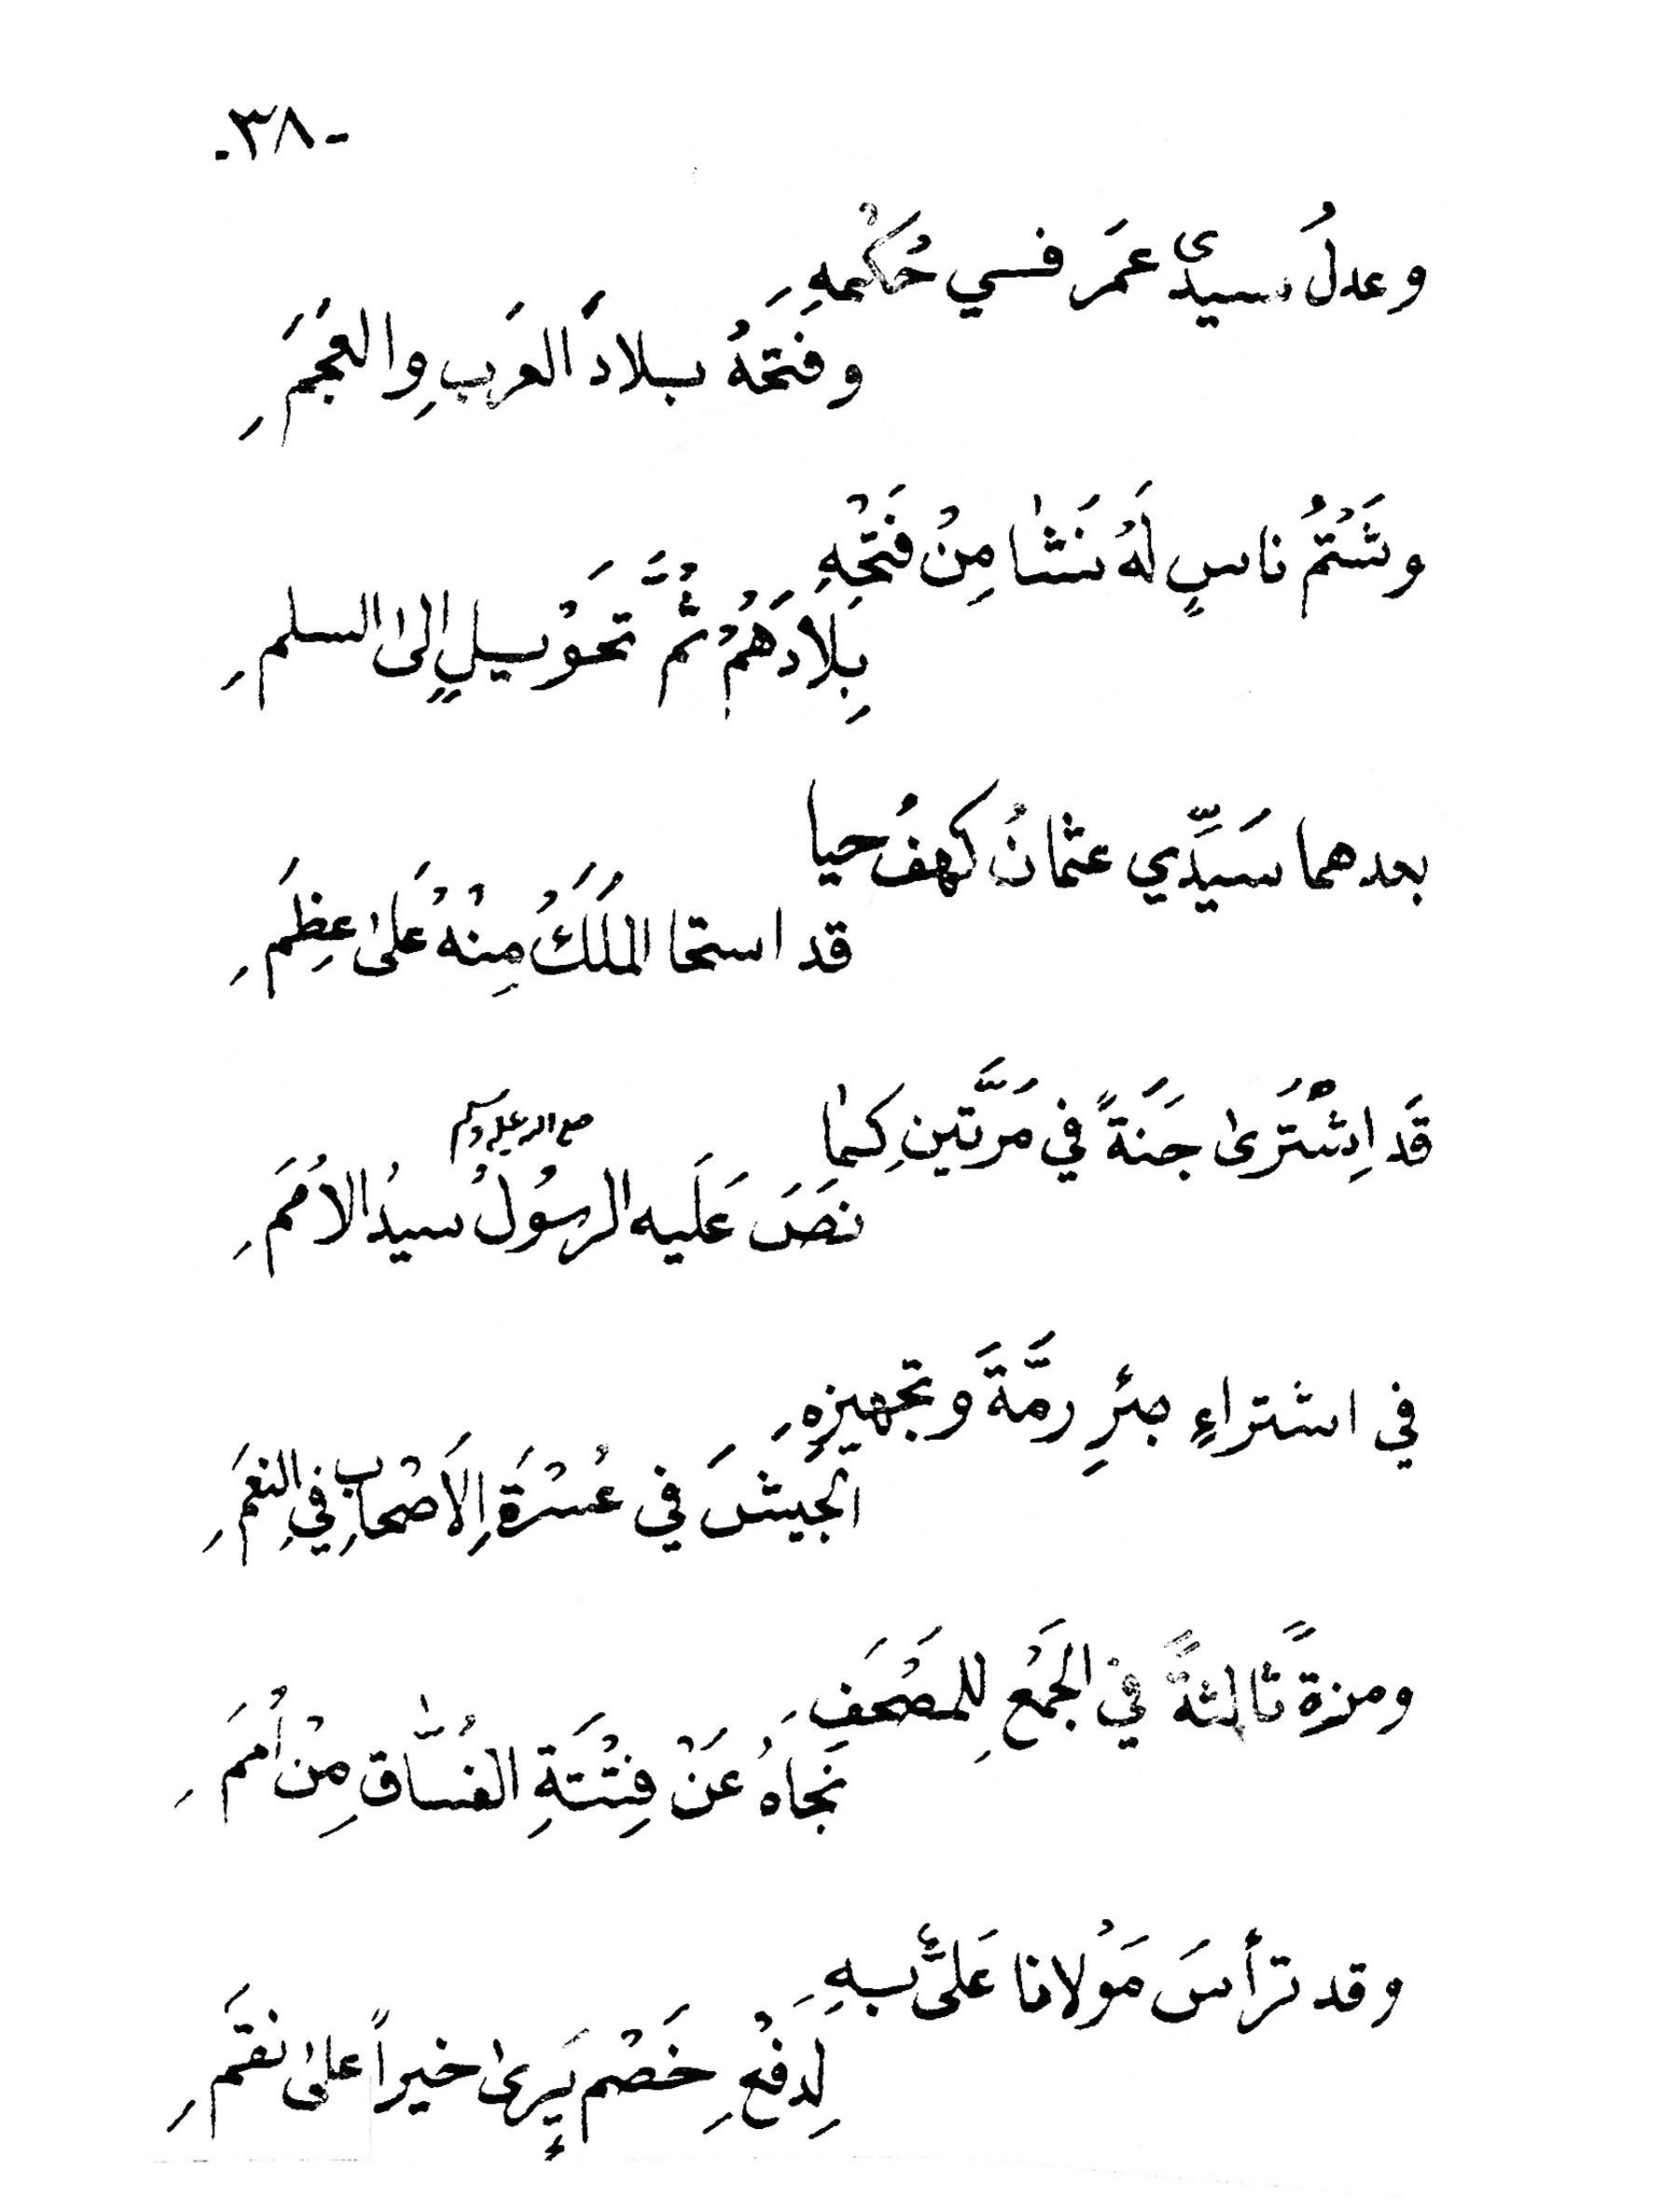 -٣٨-
وعدلُ سيدىْ عمَر فسي حُكْمهِ
وفَتحَهُ بسلادَ العرَبِ والعجَمِ
وشَتْمُ ناسٍ لَهُ نَشٰا مِنْ فَتْحِهِ
بِلادَهُمْ ثُمَّ تحَوْيسلٍ إلى السلمِ
بعدهما سَيِّدِّي عثمانُ كهفُ حيا
قد استحا المَلَكُ مِنْهُ عَلىٰ عِظَمِ
قَد اِشْتَرىٰ جَنَةً في مَرَّتَينِ كمٰا
صلى الله عليه وسلم
نصَ عَلَيه الرسُولُ سيدُ الاُمَمِ
في اشتراءِ بئرِ رمَّةَ وتجهيزِهِ
الجيشَ في عُسْرَةِ الاَصْحابِ في النعَمِ
ومرةً ثالثةً في الجَمْعِ للمصْحَفِ
نجَاهُ عَنْ فِتْنَةِ الفُسّٰاقِ مِنْ أُمَمِ
وقد ترأسَ مَوْلانا عَلىٌّ بسهِ
لِدفْعِ خَصْمٍ يَرىٰ خيراً علىٰ نقمِ